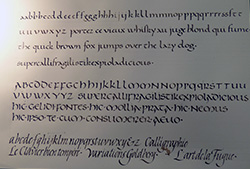 aabbcddeeffgghhijkllmmnoppqrrsstt
uuvwxyz portez ce vieux whisky au juge blond qui fume
the quick brown fox jumps over the lazy dog.
supercalifragilistikexpialidocious.
ABCDEFFGHIJKLLMMNOPQRSTTUU
VWXYZ SUPERCALIFRAGILISTIKEXPIALIDOCIOUS
HIC GELIDI FONTES HIC MOLLIA PRATA HIC NEMUS
HIC IPSO TE CUM CONSUMERER AEVO.
abcdefghijklmnopqrstuvwxyz Calligraphie
Le Clavier bien tempéré. Variations Goldberg. L'art de la Fugue